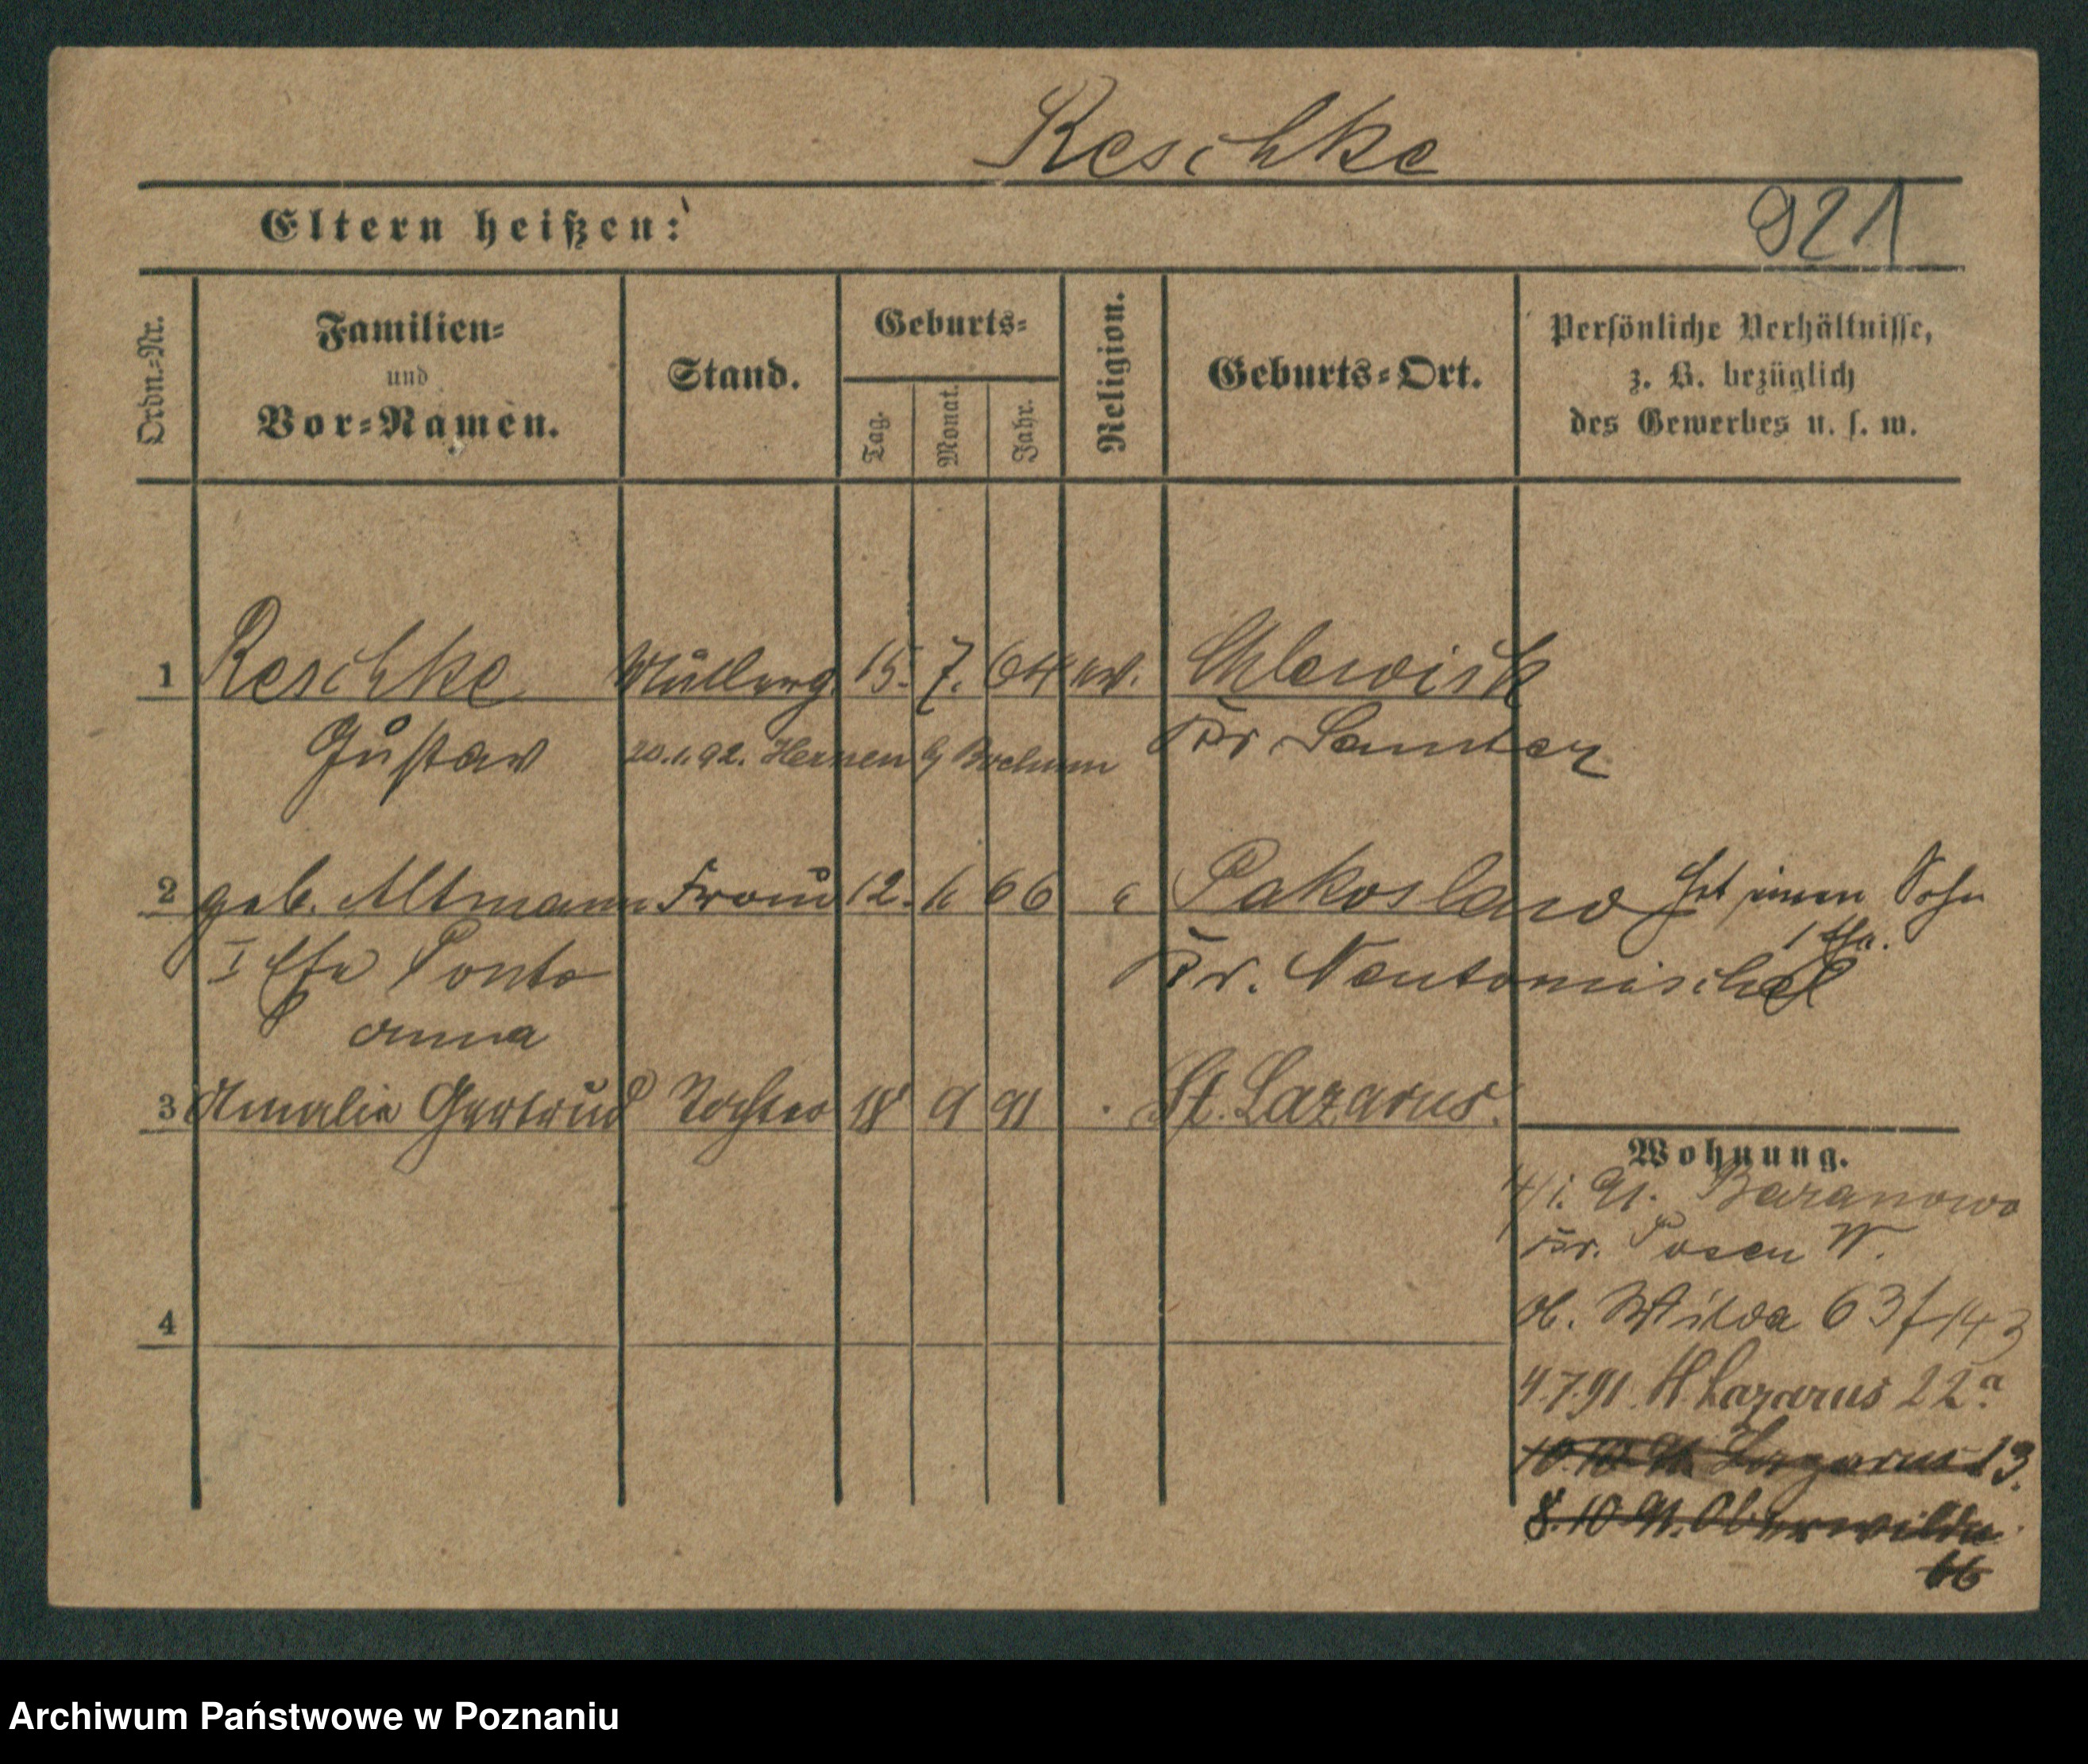 Reschke
Eltern heißen:
921
Ordn.-Nr.
Familien-
und
Vor-Namen.
Stand.
Geburts-
Tag.
Monat.
Jahr.
Religion.
Geburts-Ort.
Persönliche Verhältnisse,
z. B. bezüglich
des Gewerbes u. s. w.
1 Reschke Müllerg. 15. 7. 64 ev. Chlewisk
Gustav 20.1.92. Hernen b/ Bochum Kr Samter
2 geb. Altmann Frau 12. 66 " Pakoslaw Hat einen Sohn
I Ehe Ponto Kr. Neutomischel 1 Ehe.
Anna
3 Amalie Gertrud Tochter 18 9 91 St. Lazarus.
Wohnung.
91. Baranowo
Kr. Posen W.
Ob. Wilda 63/143
4.7.91. St Lazarus 22a
10.10.91. Lazarus 13.
8.10.91. Oberwilda
66
4
Archiwum Państwowe w Poznaniu